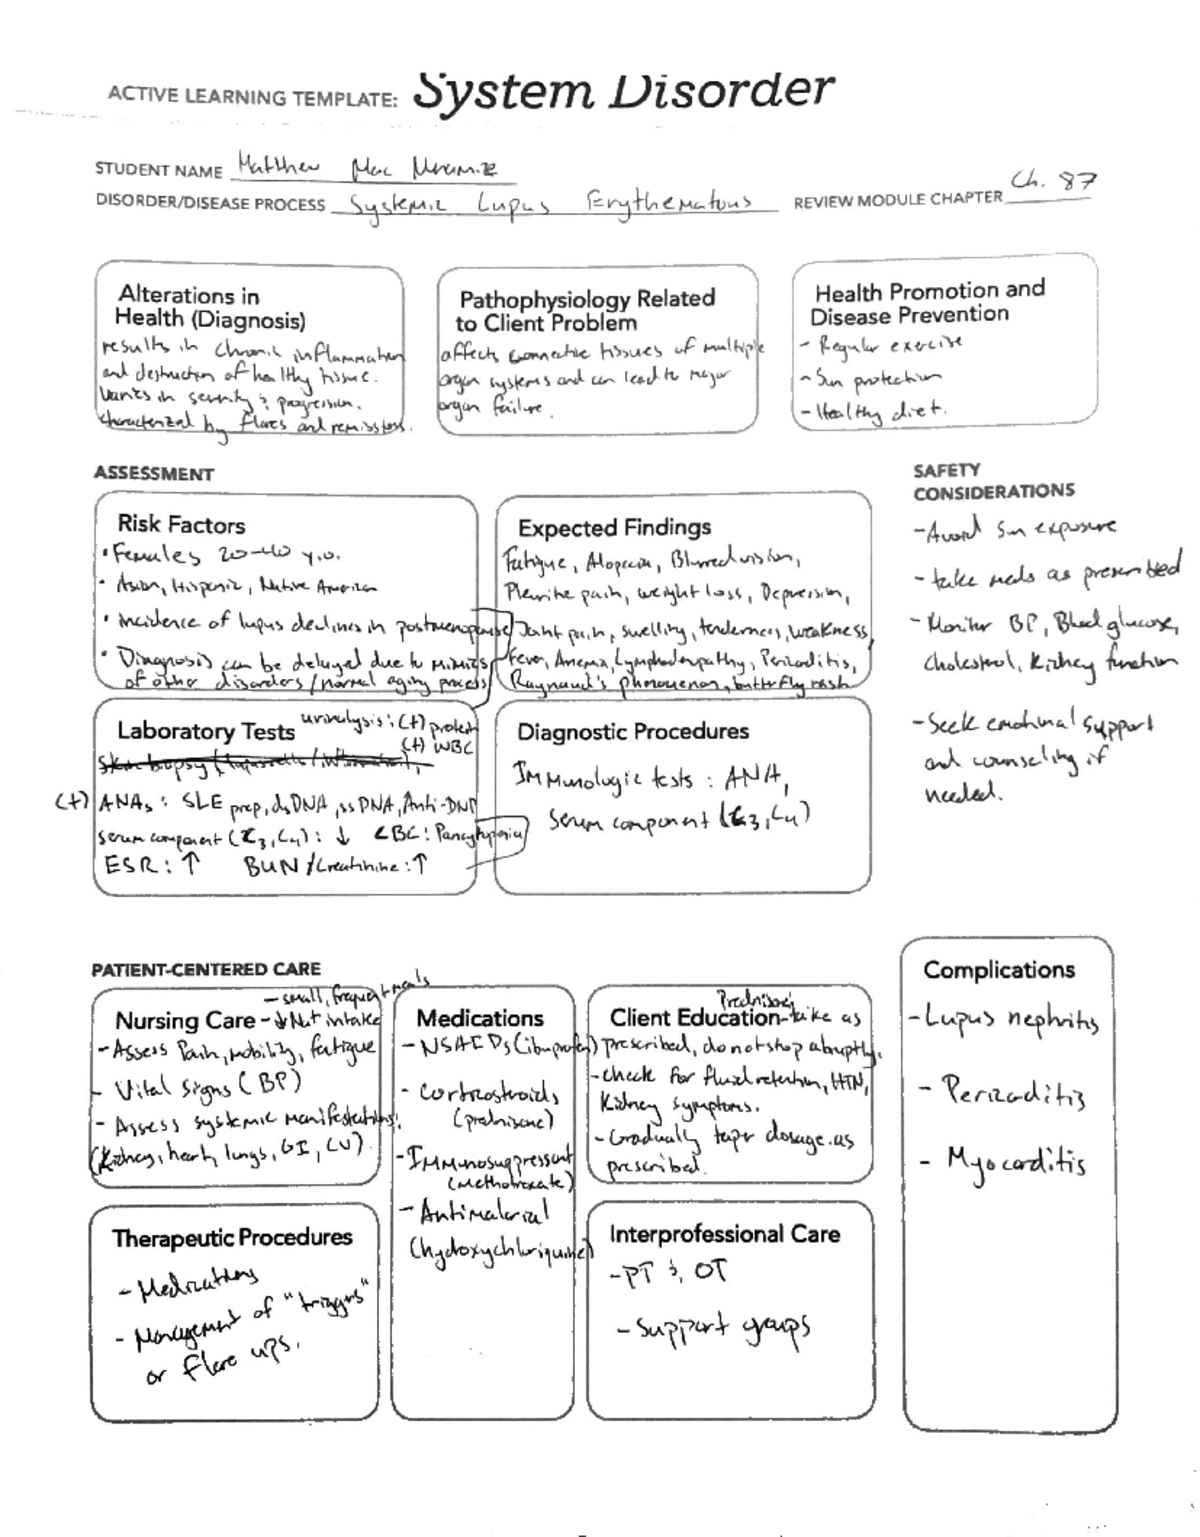 ACTIVE LEARNING TEMPLATE: System Disorder
STUDENT NAME Matthew Mac
DISORDER/DISEASE PROCESS Systemic Lupus Erythematous REVIEW MODULE CHAPTER Ch. 87
Alterations in
Health (Diagnosis)
results in chronic inflammation
and destruction of healthy tissue.
Varies in severity & progression.
characterized by flares and remissions.
Pathophysiology Related
to Client Problem
affects connective tissues of multiple
organ systems and can lead to major
organ failure.
Health Promotion and
Disease Prevention
- Regular exercise
- Sun protection
- Healthy diet.
ASSESSMENT
Risk Factors
• Females 20-40 y.o.
• Asian, Hispanic, Native American
• incidence of lupus declines in postmenopause
• Diagnosis can be delayed due to mimics
of other disorders/normal aging process
Expected Findings
Fatigue, Alopecia, Blurred vision,
Pleuritic pain, weight loss, Depression,
Joint pain, swelling, tenderness, weakness,
Fever, Anemia, Lymphadenopathy, Pericarditis,
Raynaud's phenomenon, butterfly rash
SAFETY
CONSIDERATIONS
- Avoid sun exposure
- take meds as prescribed
- Monitor BP, Blood glucose,
cholesterol, Kidney function
- Seek emotional support
and counseling if
needed.
Laboratory Tests urinalysis: (+) protein
(+) WBC
skin biopsy
(+) ANAs: SLE prep, dsDNA, ssDNA, Anti-DNP
serum component (C3, C4): ↓ CBC: Pancytopenia
ESR: ↑ BUN/Creatinine: ↑
Diagnostic Procedures
Immunologic tests: ANA,
serum component (C3, C4)
PATIENT-CENTERED CARE
- small, frequent meals
Nursing Care - ↓ Na+ intake
- Assess Pain, mobility, fatigue
- Vital Signs (BP)
- Assess systemic manifestations:
(Kidney, heart, lungs, GI, CV)
Medications
- NSAIDs (ibuprofen)
- Corticosteroids
(prednisone)
- Immunosuppressant
(Methotrexate)
- Antimalarial
(hydoxychloriquine)
Prednisone:
Client Education - take as
prescribed, do not stop abruptly.
- check for fluid retention, HTN,
Kidney symptoms.
- Gradually taper dosage as
prescribed.
Complications
- Lupus nephritis
- Pericarditis
- Myocarditis
Therapeutic Procedures
- Medications
- Management of "triggers"
or flare ups.
Interprofessional Care
- PT & OT
- Support groups